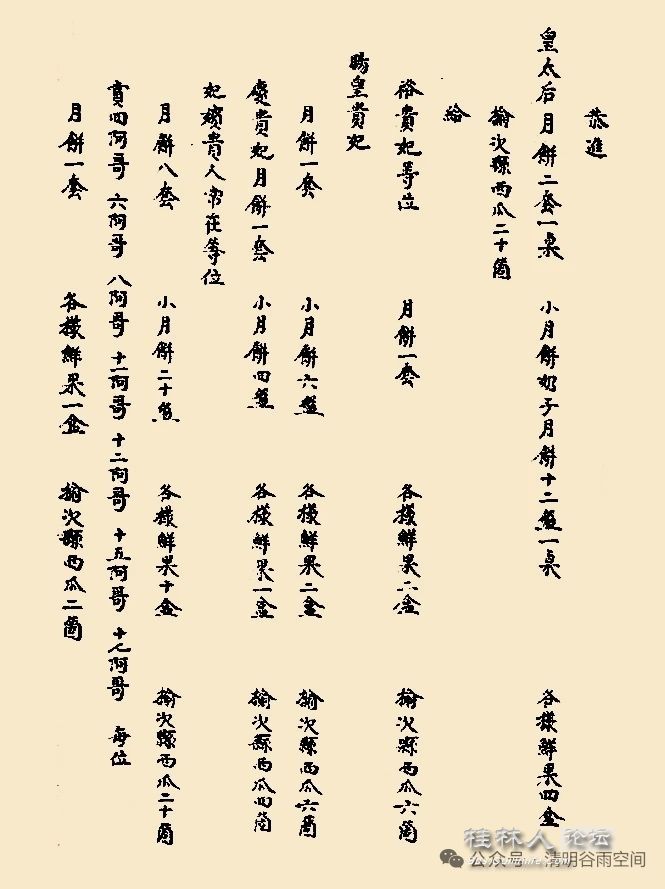 恭進
皇太后月餅二套一桌　小月餅奶子月餅十二盤一桌　各樣鮮果四盒
榆次縣西瓜二十箇
給
裕貴妃等位　月餅一套　各樣鮮果二盒　榆次縣西瓜六箇
賜皇貴妃
月餅一套　小月餅六盤　各樣鮮果二盒　榆次縣西瓜六箇
慶貴妃月餅一套　小月餅四盤　各樣鮮果一盒　榆次縣西瓜四箇
妃嬪貴人常在等位
月餅八套　小月餅二十盤　各樣鮮果十盒　榆次縣西瓜二十箇
賞四阿哥　六阿哥　八阿哥　十一阿哥　十二阿哥　十五阿哥　十七阿哥　每位
月餅一套　各樣鮮果一盒　榆次縣西瓜二箇
桂林人 论坛
公众号 · 清明谷雨空间